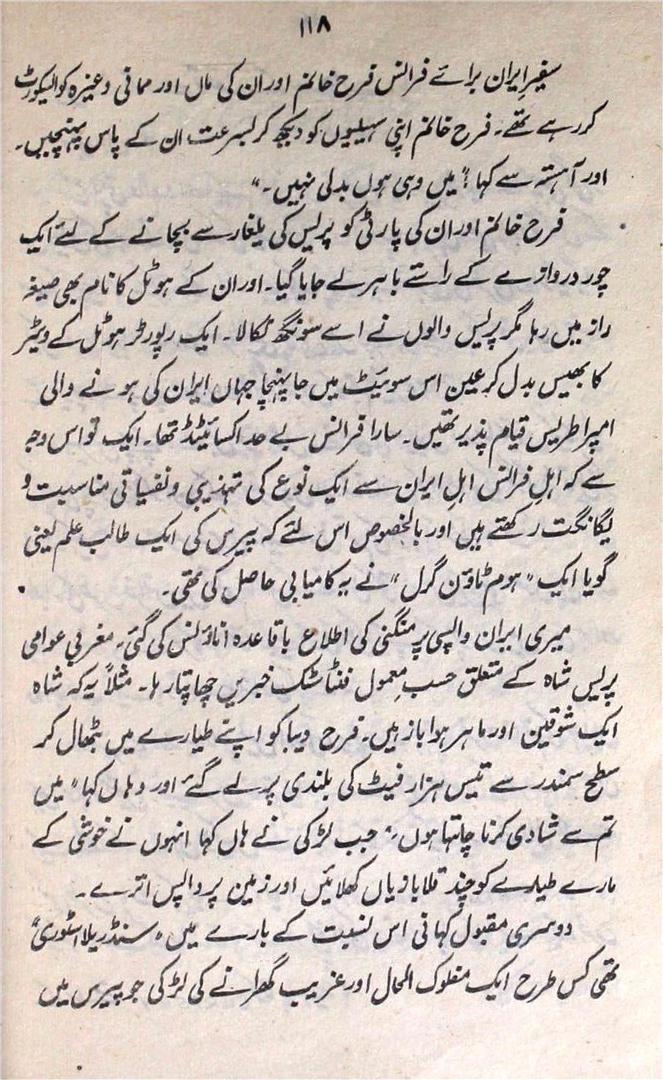 ۱۱۸
سفیر ایران برائے فرانس فرح خانم اور ان کی ماں اور ممانی وغیرہ کو الیکورٹ
کر رہے تھے۔ فرح خانم اپنی سہیلیوں کو دیکھ کر بسرعت ان کے پاس پہنچیں۔
اور آہستہ سے کہا "میں وہی ہوں بدلی نہیں۔"
فرح خانم اور ان کی پارٹی کو پریس کی یلغار سے بچانے کے لئے ایک
چور دروازے کے راستے باہر لے جایا گیا۔ اور ان کے ہوٹل کا نام بھی صیغہ
راز میں رہا مگر پریس والوں نے اسے سونگھ نکالا۔ ایک رپورٹر ہوٹل کے ویٹر
کا بھیس بدل کر عین اس سوئیٹ میں جا پہنچا جہاں ایران کی ہونے والی
امپراطریس قیام پذیر تھیں۔ سارا فرانس بے حد اکسائیٹڈ تھا۔ ایک تو اس وجہ
سے کہ اہلِ فرانس اہلِ ایران سے ایک نوع کی تہذیبی و نفسیاتی مناسبت و
یگانگت رکھتے ہیں اور بالخصوص اس لئے کہ پیرس کی ایک طالب علم یعنی
گویا ایک "ہوم ٹاؤن گرل" نے یہ کامیابی حاصل کی تھی۔
میری ایران واپسی پر منگنی کی اطلاع باقاعدہ اناؤنس کی گئی۔ مغربی عوامی
پریس شاہ کے متعلق حسبِ معمول فنٹاسٹک خبریں چھاپتا رہا۔ مثلاً یہ کہ شاہ
ایک شوقین اور ماہر ہوا باز ہیں۔ فرح دیبا کو اپنے طیارے میں بٹھال کر
سطح سمندر سے تیس ہزار فیٹ کی بلندی پر لے گئے اور وہاں کہا "میں
تم سے شادی کرنا چاہتا ہوں" جب لڑکی نے ہاں کہا انہوں نے خوشی کے
مارے طیارے کو چند قلابازیاں کھلائیں اور زمین پر واپس اترے۔
دوسری مقبول کہانی اس نسبت کے بارے میں "سنڈریلا اسٹوری"
تھی کس طرح ایک مفلوک الحال اور غریب گھرانے کی لڑکی جو پیرس میں